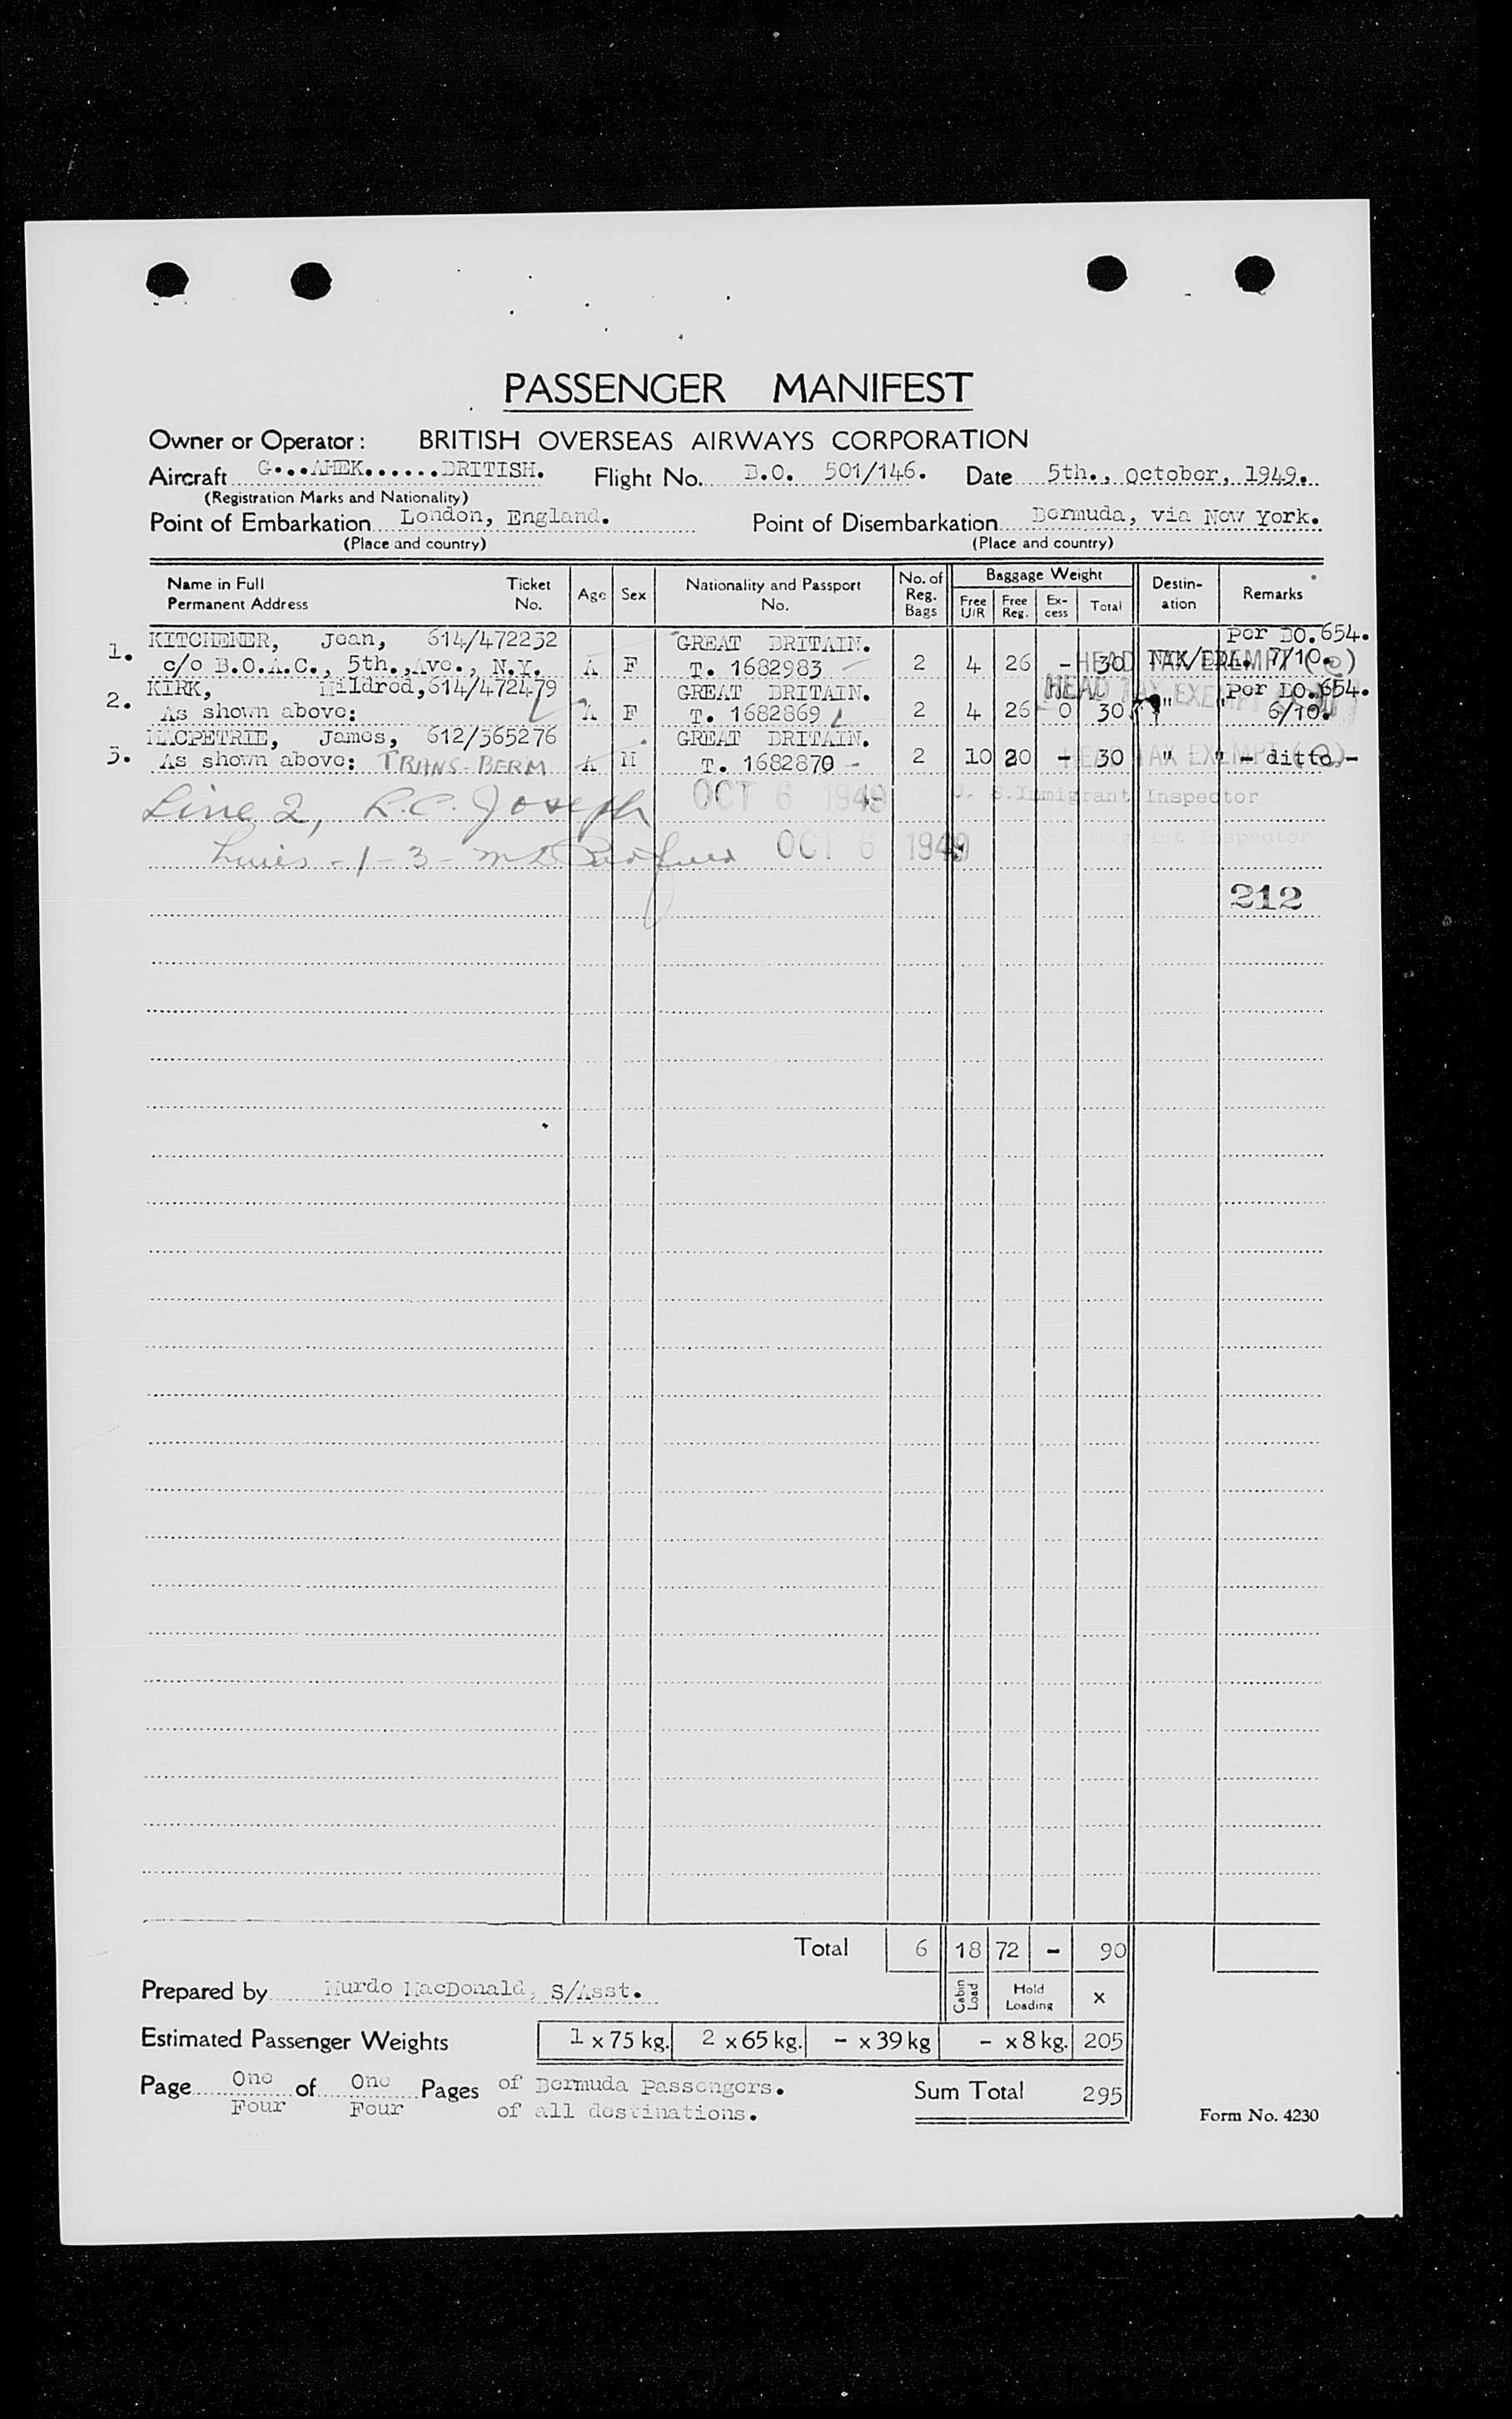 PASSENGER MANIFEST
Owner or Operator: BRITISH OVERSEAS AIRWAYS CORPORATION
Aircraft G...AHEK......BRITISH. Flight No. B.O. 501/146. Date 5th., October, 1949.
(Registration Marks and Nationality)
Point of Embarkation London, England. Point of Disembarkation Bermuda, via New York.
(Place and country) (Place and country)
Name in Full Ticket Age Sex Nationality and Passport No. of Baggage Weight Destin- Remarks
Permanent Address No. No. Reg. Bags Free U/R Free Reg. Ex-cess Total ation
KITCHENER, Jean, 614/472232 GREAT BRITAIN. per BO.654.
1. c/o B.O.A.C., 5th.,Ave., N.Y. A F T. 1682983 2 4 26 - 30 NYK/BDA. 7/10.
HEAD TAX EXEMPT
KIRK, Mildred, 614/472479 GREAT BRITAIN. per BO.654.
2. As shown above: A F T. 1682869 2 4 26 0 30 " " 6/10.
HEAD TAX EXEMPT
MACPETRIE, James, 612/365276 GREAT BRITAIN.
3. As shown above: TRANS-BERM A M T. 1682870 - 2 10 20 - 30 " " - ditto -
HEAD TAX EXEMPT
Line 2, R.C. Joseph OCT 6 1949 U. S. Immigrant Inspector
Lines - 1 - 3 - OCT 6 1949 U.S. Immigrant Inspector
212
Total 6 18 72 - 90
Prepared by Murdo MacDonald, S/Asst. Cabin Load Hold Loading x
Estimated Passenger Weights 1 x 75 kg. 2 x 65 kg. - x 39 kg - x 8 kg. 205
Page One of One Pages of Bermuda passengers. Sum Total 295
Four Four of all destinations.
Form No. 4230